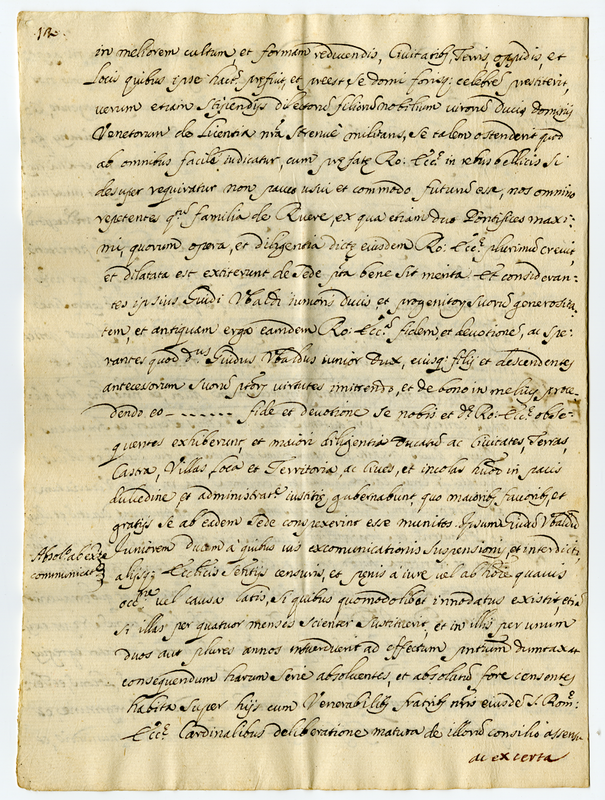 12.
in meliorem cultum et formam reducendis, Civitatib, Terris, oppidis, et
Locis quibus ipse hact prefuit, et preest se domi forisq; celebre prestiterit,
verum etiam Stipendijs directoru filioru nobilium viroru Ducis dominij
Venetorum de Licentia nra Strenue militans, se talem ostenderit quod
ab omnibus facile iudicatur, cum prefate Ro: Ecc in rebus bellicis si
desuper requiratur non pauco usui et commodo futuru esse, nos omnino
repetentes familia de Ruere, ex qua etiam duo Pontifices maxi-
mi, quorum opera, et diligentia dicte eiusdem Ro: Ecc plurimu crevit
et dilatata est extiterunt de Sede pta bene sit merita. Et consideran-
tes ipsius Guidi Ubaldi iunioris Ducis, et progenitoru suoru generosita
tem, et antiquam erga eamdem Ro: Ecc fidem, et devotione, ac spe-
rantes quod dus Guidus Ubaldus iunior Dux, eiusq; filij et descendentes
antecessorum suoru virtutes imitando, et de bono in melius proce
dendo eo - - - - - - fide et devotione se nobis et Ro: Ecc obse-
quentes exhiberunt, et maiori diligentia Ducatu ac Civitates, Terras,
Castra, Villas Loca et Territoria, ac Cives, et incolas in pacis
dulcedine, et administrat iustitie gubernabunt, quo maiorib favorib, et
gratijs se ab eadem Sede conspexerint esse munitos. Ipsum Guidu Ubaldu
Juniorem Ducem a quibus vis excomunicationis suspensionis, et interdicti,
alijsq; Ecclicis Setitijs censuris, et penis a iure vel ab hoie quavis
occne vel causa latis, si quibus quomodolibet innodatus existit, etia
si illas per quatuor menses scienter sustinuerit, et in illis per unum
duos aut plures annos ad effectum pntium dumtaxat
consequendum harum serie absolventes, et absolutu fore censentes
habita super hijs cum Venerabilib fratrib nris eiusde S. Rom:
Ecc Cardinalibus deliberatione matura de illoru consilio assensu
ac ex certa
Absol ab ex
communicat